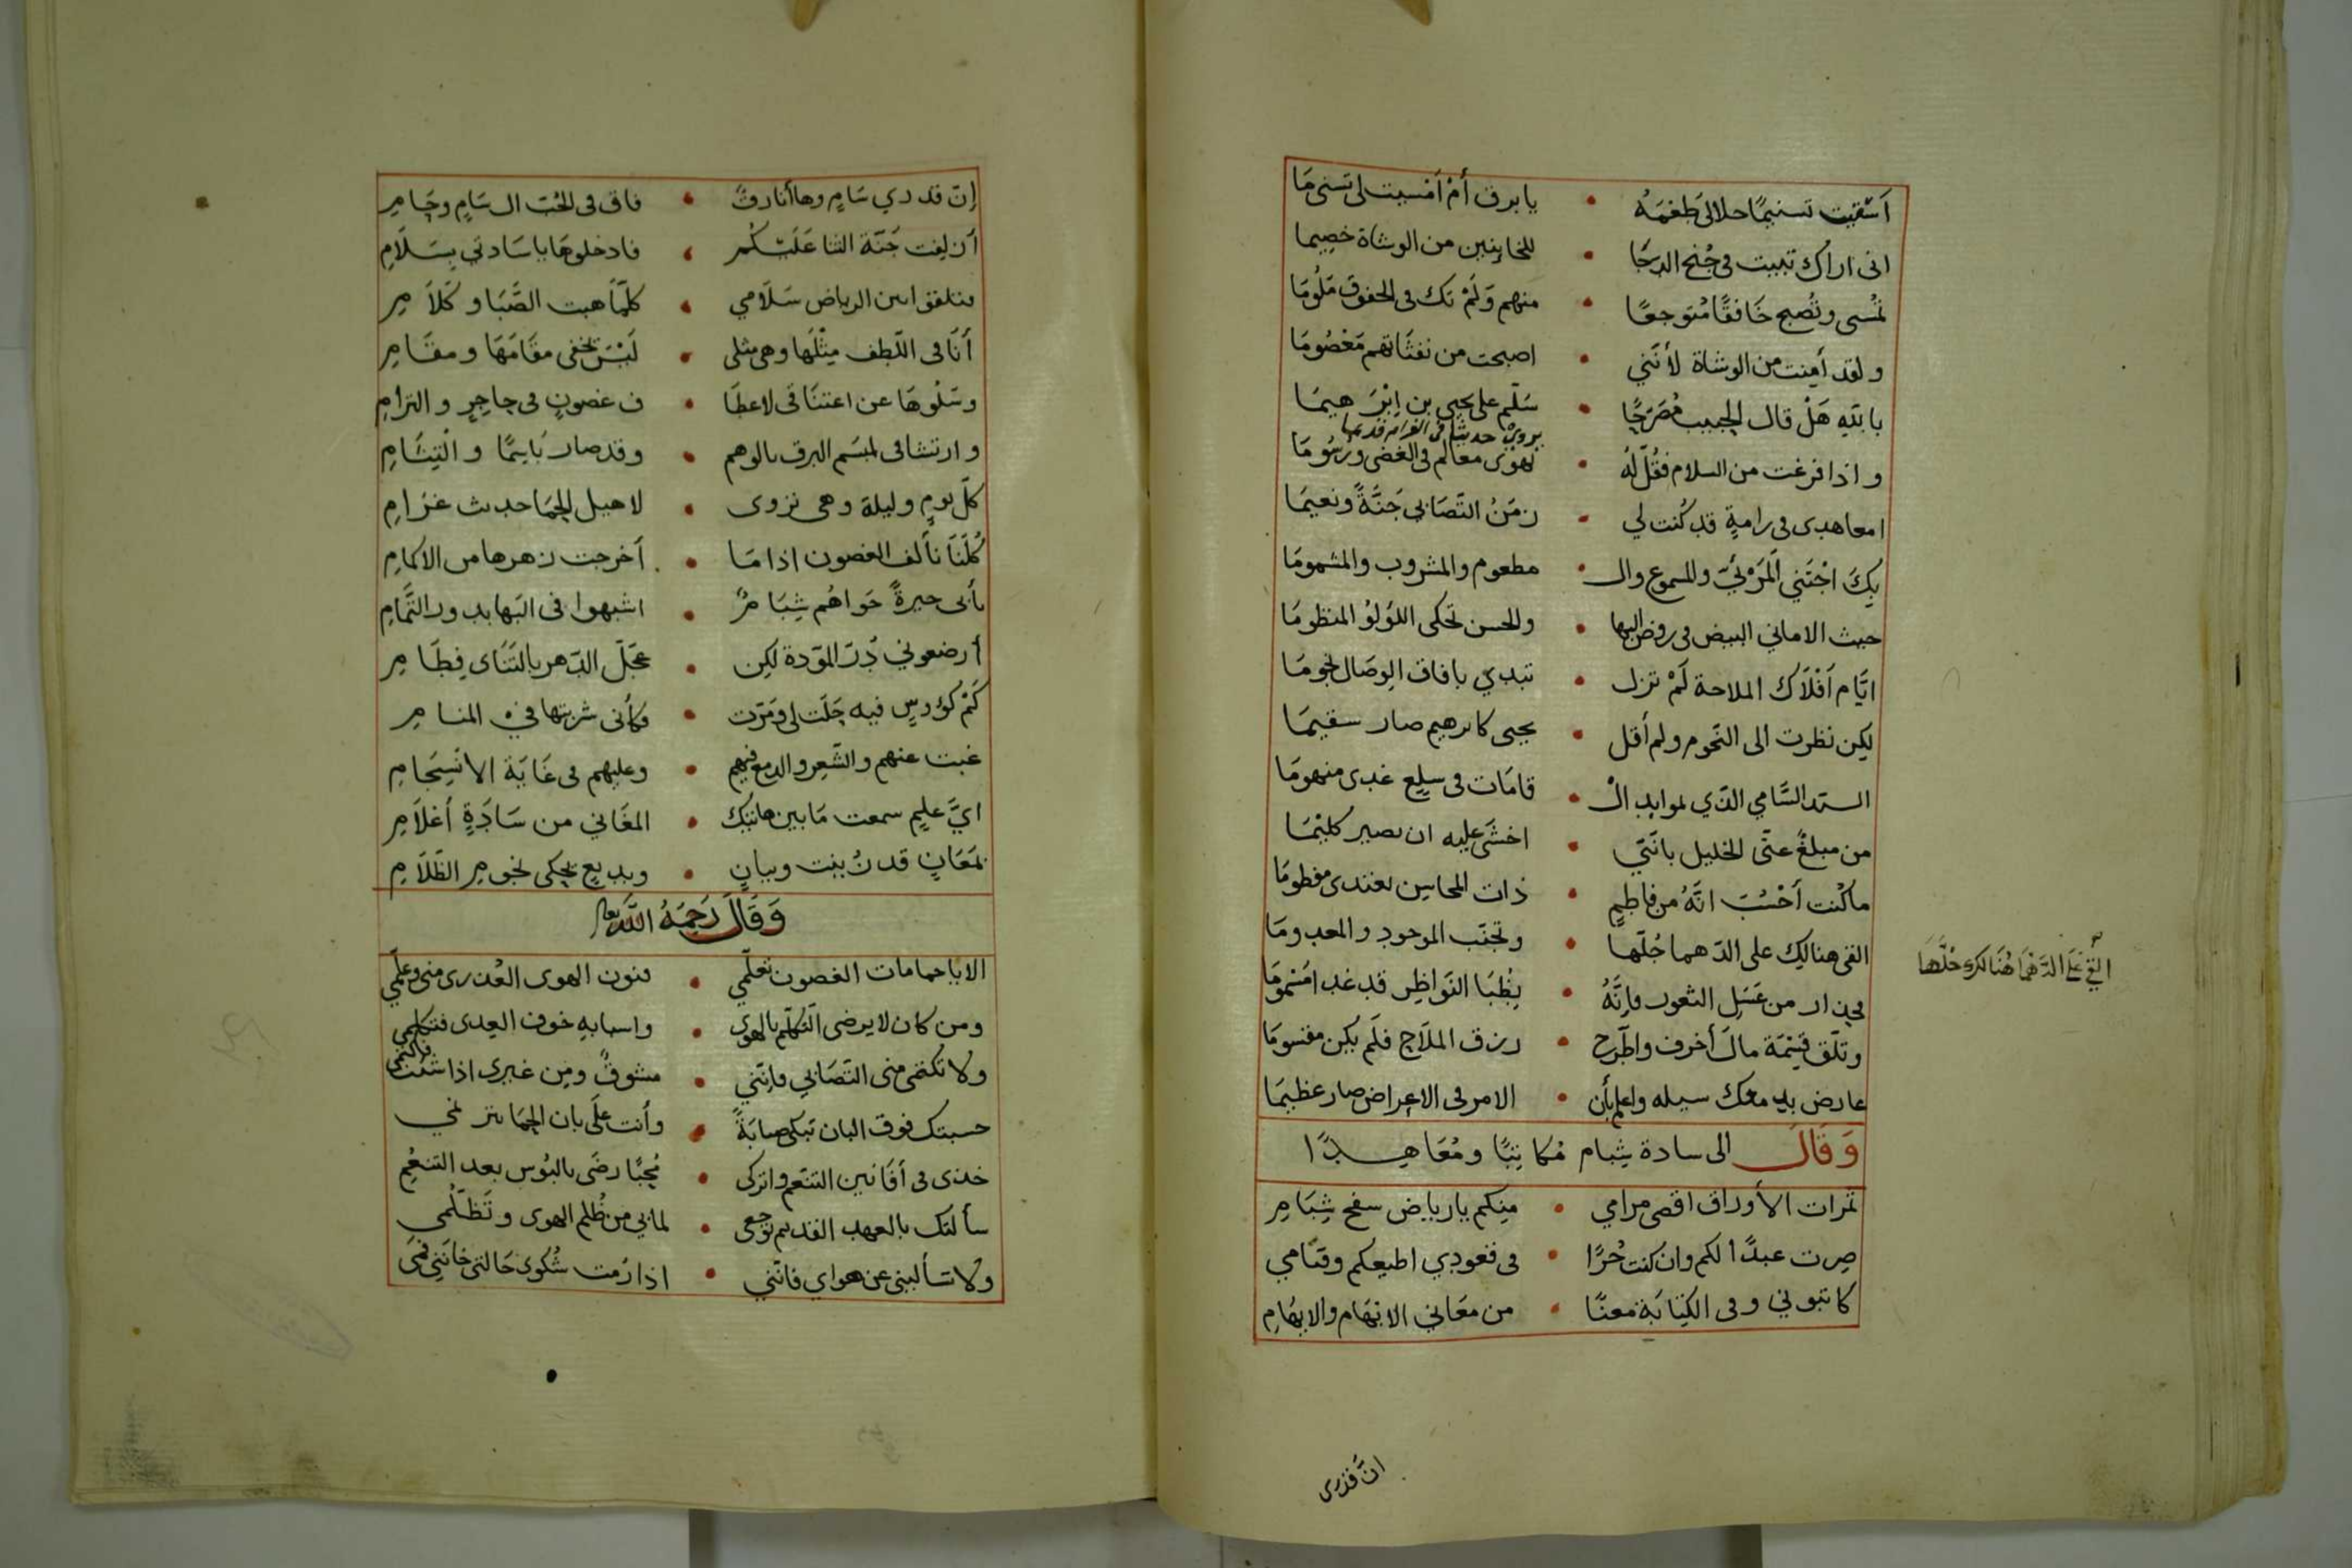 أسقيت تسنيمًا حلا لي طعمه • يا برق أم أمسيت لي تسنى ما
اني اراك تبيت في جنح الدجا • للخاينين من الوشاة خصيما
تمسى وتصبح خافقًا متوجعًا • منهم ولم تك في الخفوق ملوما
ولقد أمنت من الوشاة لأنني • اصبحت من نفثاتهم مغصوما
بالله هل قال الحبيب مصرحًا • سلم على يحيى بن ابرهيما
يروي حديثا في الغرام قديما
واذا فرغت من السلام فقل له • نهوى معالم في الغضى ورسوما
امعاهدى في رامة قد كنت لي • زمن التصابي جنة ونعيما
بك اجتني المرئي والمسموع وال • مطعوم والمشروب والمشموما
حيث الاماني البيض في روض البها • والحسن تحكى اللؤلؤ المنظوما
ايام أفلاك الملاحة لم تزل • تبدي بافاق الوصال نجوما
لكن نظرت الى النجوم ولم أقل • يحيى كابرهيم صار سقيما
السيد السامي الذي لموايد ال • قامات في سلع غدى منهوما
من مبلغ عني الخليل بأنني • اخشى عليه ان يصير كليما
ما كنت أحسب انه من فاطم • ذات المحاسن يغتدى مفطوما
الفى هنالك على الدهما جلها • وتجنب الموجود والمعدوما
فحذار من عسل الثغور فإنه • بظبا النواظر قد غدا مسموما
وتلق قيمة مال أخرف واطرح • رزق الملاح فلم يكن مقسوما
عارض بدمعك سيله واعلم بأن • الامر في الاعراض صار عظيما
وقال الى سادة شبام مكاتبًا ومعاهدًا
ثمرات الأوراق اقصى مرامي • منكم يا رياض سفح شبام
صرت عبدًا لكم وان كنت حرًا • في قعودي اطيعكم وقيامي
كاتبوني وفي الكتابة معنًا • من معاني الاتهام والابهام
ان قدرى
إن قدري سام وها أنا رق • فاق في الحب ال سام وحام
أزلفت جنة الثنا عليكم • فادخلوها يا سادتي بسلام
كلما هبت الصبا وكلام
أنا في اللطف مثلها وهي مثلى • ليس تخفى مقامها ومقام
وسلوها عن اعتناقى لاعطا • ف غصون في حاجر والتزام
وارتشافى لمبسم البرق بالوهم • وقد صار باسمًا والتثام
كل يوم وليلة وهى تروى • لاهيل الحما حديث غرام
كلنا نألف الغصون اذا ما • أخرجت زهرها من الاكمام
بأبى جيرة حواهم شبام • اشبهوا في البها بدور التمام
أرضعوني در المودة لكن • عجل الدهر بالتناى فطام
كم كؤوس فيه حلت لي ومرت • فكأنى شربتها في المنام
غبت عنهم والشعر والدمع فيهم • وعليهم في غاية الانسجام
اي علم سمعت ما بين هاتيك • المغاني من سادة أعلام
بمعان قد زينت وبيان • وبديع يحكى نجوم الظلام
وقال رحمه الله تعالى
الا يا حمامات الغصون تعلمي • فنون الهوى العذرى منى وعلمي
ومن كان لا يرضى التكلم بالهوى • واسبابه خوف العدى فتكلمي
ولا تكتمى منى التصابي فإنني • مشوق ومن غيرى اذا شئت فاكتمى
حسبتك فوق البان تبكى صبابة • وأنت على بان الحما تترنمي
خذى في أفانين التنعم واتركى • محبًا رضى بالبؤس بعد التنعم
سألتك بالعهد القديم توجعى • لما بي من ظلم الهوى وتظلمي
ولا تسألينى عن هواي فانني • اذا رمت شكوى حالتى خانني فمى